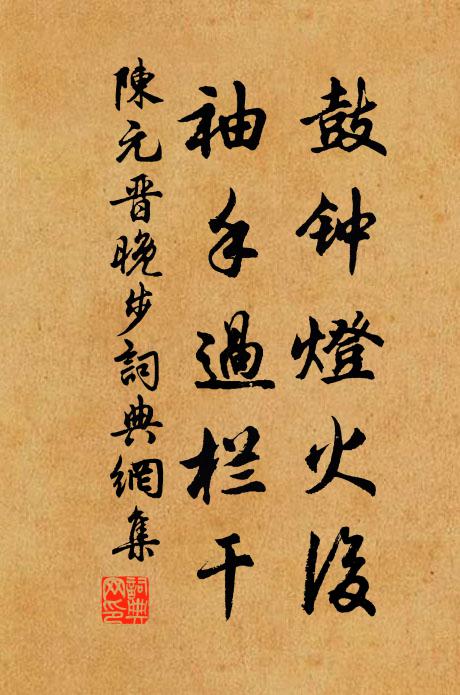 鼓钟燈火后
袖手過栏干
陳元晋晚步詞典網集
詞典网印